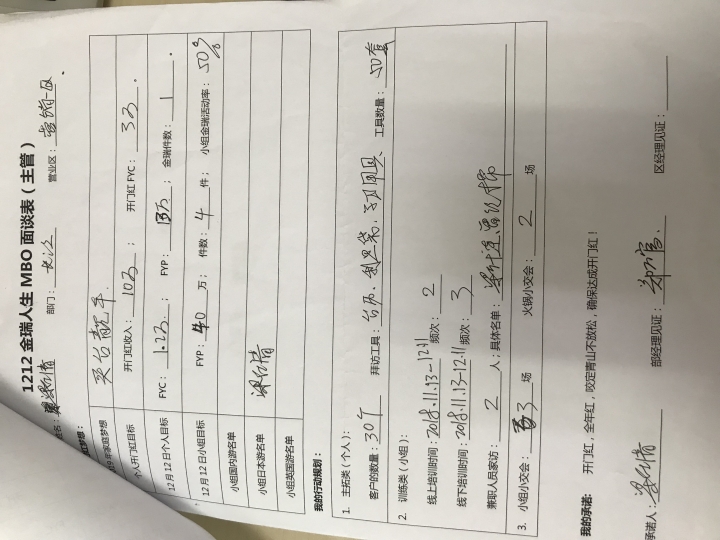 1212 金瑞人生 MBO 面谈表（主管）
部门： 营业区：
梦想：
9年家庭梦想
个人开门红目标 开门红收入： 10万 ； 开门红 FYC： 3万 .
12月12日个人目标 FYC： 1.2万 ； FYP： 13万 ； 金瑞件数： 1 .
12月12日小组目标 FYP： 40 万； 件数： 4 件； 小组金瑞活动率： 50%
小组国内游名单
小组日本游名单
小组英国游名单
我的行动规划：
1. 主拓类（个人）：
客户的数量： 30个 拜访工具： 工具数量： 50套
2. 训练类（小组）：
线上培训时间： 2018.11.13-12.11 频次： 2
线下培训时间： 2018.11.13-12.11 频次： 3
兼职人员家访： 2 人；具体名单：
3. 小组小交会： 3 场 火锅小交会： 2 场
我的承诺： 开门红，全年红，咬定青山不放松，确保达成开门红！
承诺人： 部经理见证： 区经理见证：